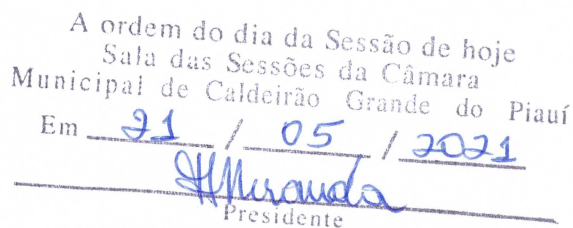 A ordem do dia da Sessão de hoje
Sala das Sessões da Câmara
Municipal de Caldeirão Grande do Piauí
Em 21 / 05 / 2021
HMiranda
Presidente